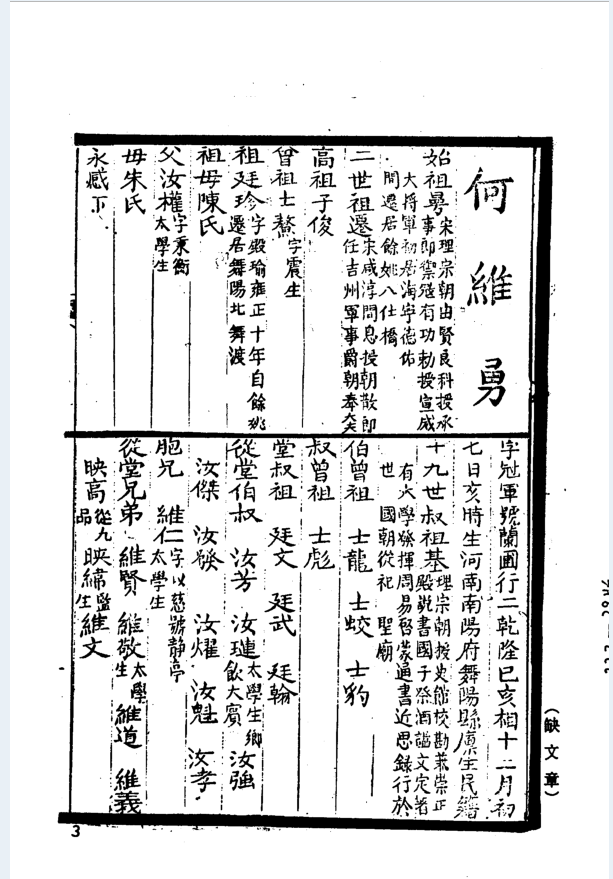 何維勇
始祖㬅宋理宗朝由賢良科授承
事郎禦寇有功勅授宣威
大將軍初居海寧德佑
間遷居餘姚八仕橋
二世祖遷宋咸淳間恩授朝散郎
任吉州軍事爵朝奉大夫
高祖子俊
曾祖士鰲字震生
祖廷珍字殿瑜雍正十年自餘姚
遷居舞陽北舞渡
祖毋陳氏
父汝權字秉衡
太學生
毋朱氏
永感下
字冠軍號蘭圃行二乾隆已亥相十二月初
七日亥時生河南南陽府舞陽縣廩生民籍
十九世叔祖基理宗朝授史館校勘兼崇正
殿說書國子祭酒謚文定著
有大學發揮周易啓蒙通書近思錄行於
世 國朝從祀 聖廟
伯曾祖 士龍 士蛟 士豹
叔曾祖 士彪
堂叔祖 廷文 廷武 廷翰
從堂伯叔 汝芳 汝璉太學生鄉
飲大賓 汝強
汝傑 汝發 汝燿 汝魁 汝孝
胞兄 維仁字以慈號靜亭
太學生
從堂兄弟 維賢 維敬太學
生 維道 維義
映高從九
品 映締監
生 維文
(缺文章)
3